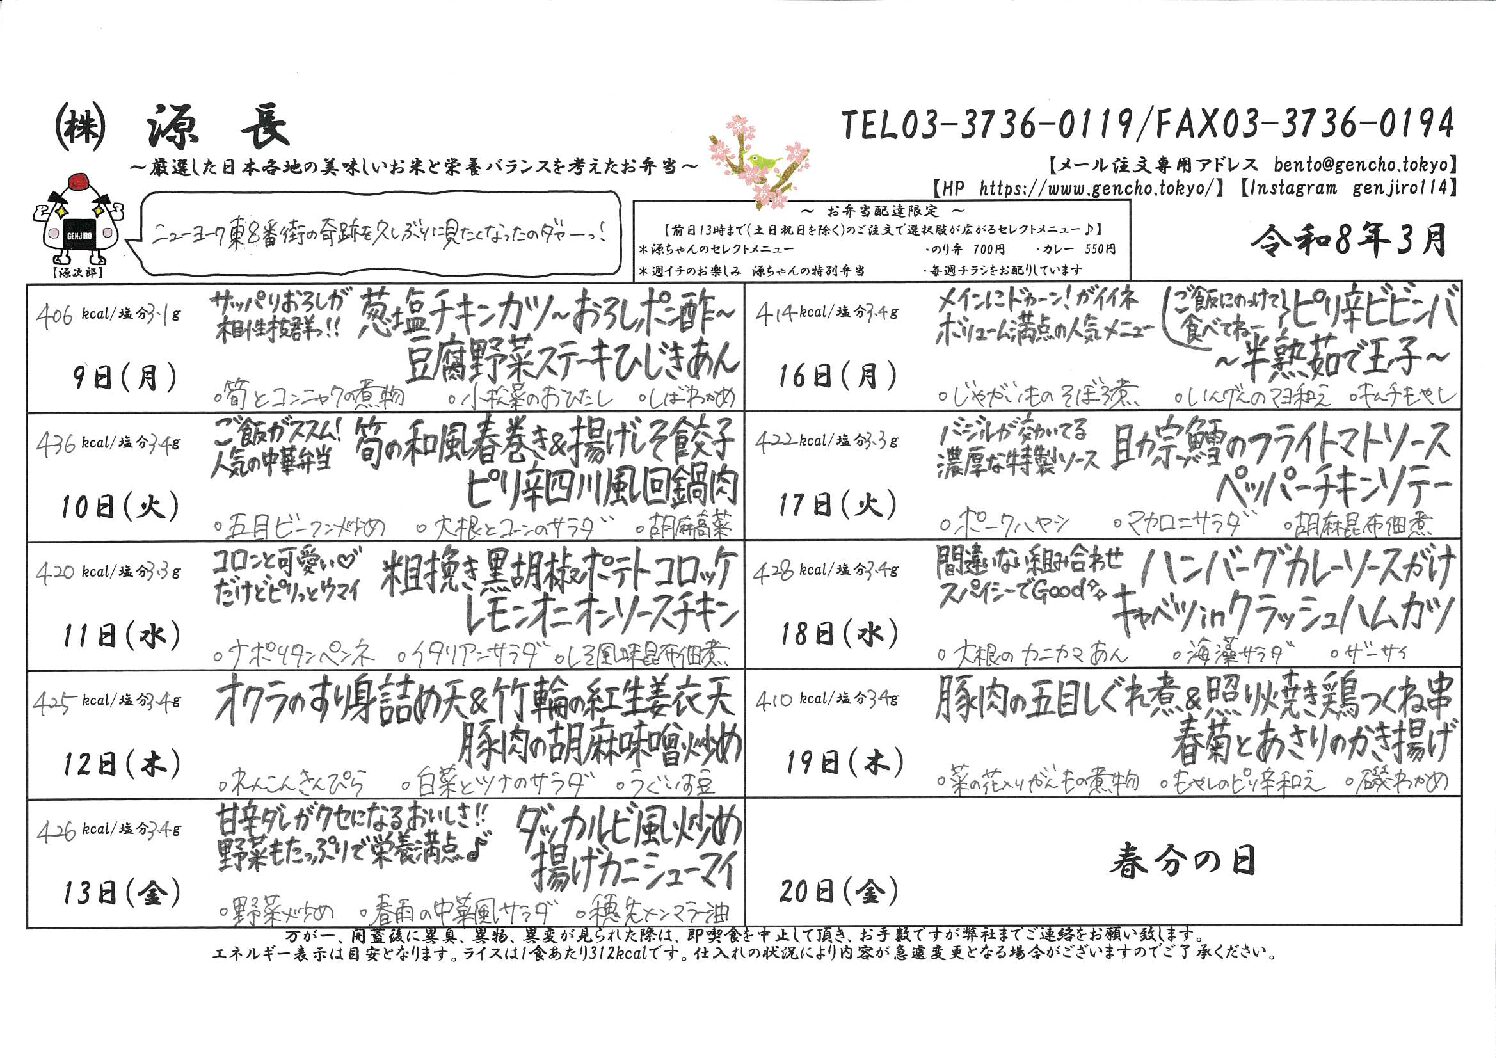 ㈱ 源長
～厳選した日本各地の美味しいお米と栄養バランスを考えたお弁当～
TEL03-3736-0119/FAX03-3736-0194
【メール注文専用アドレス bento@gencho.tokyo】
【HP https://www.gencho.tokyo/】【Instagram genjiro114】
GENJIRO
【源次郎】
ニューヨーク東8番街の奇跡を久しぶりに見たくなったのダャーっ!
～ お弁当配達限定 ～
【前日13時まで(土日祝日を除く)のご注文で選択肢が広がるセレクトメニュー♪】
*源ちゃんのセレクトメニュー ・のり弁 700円 ・カレー 550円
*週イチのお楽しみ 源ちゃんの特別弁当 ・毎週チラシをお配りしています
令和8年3月
406 kcal/塩分3.1g
9日(月)
サッパリおろしが
相性抜群っ!!
葱塩チキンカツ～おろしポン酢～
豆腐野菜ステーキひじきあん
○筍とコンニャクの煮物 ○小松菜のおひたし ○しばわかめ
436 kcal/塩分3.4g
10日(火)
ご飯がススム!
人気の中華弁当
筍の和風春巻き&揚げしそ餃子
ピリ辛四川風回鍋肉
○五目ビーフン炒め ○大根とコーンのサラダ ○胡麻高菜
420 kcal/塩分3.3g
11日(水)
コロンと可愛い♡
だけどピリっとウマイ
粗挽き黒胡椒ポテトコロッケ
レモンオニオンソースチキン
○ナポリタンペンネ ○イタリアンサラダ ○しそ風味昆布佃煮
425 kcal/塩分3.4g
12日(木)
オクラのすり身詰め天&竹輪の紅生姜衣天
豚肉の胡麻味噌炒め
○れんこんきんぴら ○白菜とツナのサラダ ○うぐいす豆
426 kcal/塩分3.4g
13日(金)
甘辛ダレがクセになるおいしさ!!
野菜もたっぷりで栄養満点♪
ダッカルビ風炒め
揚げカニシューマイ
○野菜炒め ○春雨の中華風サラダ ○穂先メンマラー油
414 kcal/塩分3.4g
16日(月)
メインにドカーン!がイイネ
ボリューム満点の人気メニュー
ご飯にのっけて
食べてねー
ピリ辛ビビンバ
～半熟茹で玉子～
○じゃがいものそぼろ煮 ○いんげんのマヨ和え ○キムチもやし
422 kcal/塩分3.3g
17日(火)
バジルが効いてる
濃厚な特製ソース
助宗鱈のフライトマトソース
ペッパーチキンソテー
○ポークハヤシ ○マカロニサラダ ○胡麻昆布佃煮
428 kcal/塩分3.4g
18日(水)
間違いない組み合わせ
スパイシーでGood
ハンバーグカレーソースがけ
キャベツinクラッシュハムカツ
○大根のカニカマあん ○海藻サラダ ○ザーサイ
410 kcal/塩分3.4g
19日(木)
豚肉の五目しぐれ煮&照り焼き鶏つくね串
春菊とあさりのかき揚げ
○菜の花入りがんもの煮物 ○もやしのピリ辛和え ○磯わかめ
20日(金)
春分の日
万が一、開蓋後に異臭、異物、異変が見られた際は、即喫食を中止して頂き、お手数ですが弊社までご連絡をお願い致します。
エネルギー表示は目安となります。ライスは1食あたり312kcalです。仕入れの状況により内容が急遽変更となる場合がございますのでご了承ください。